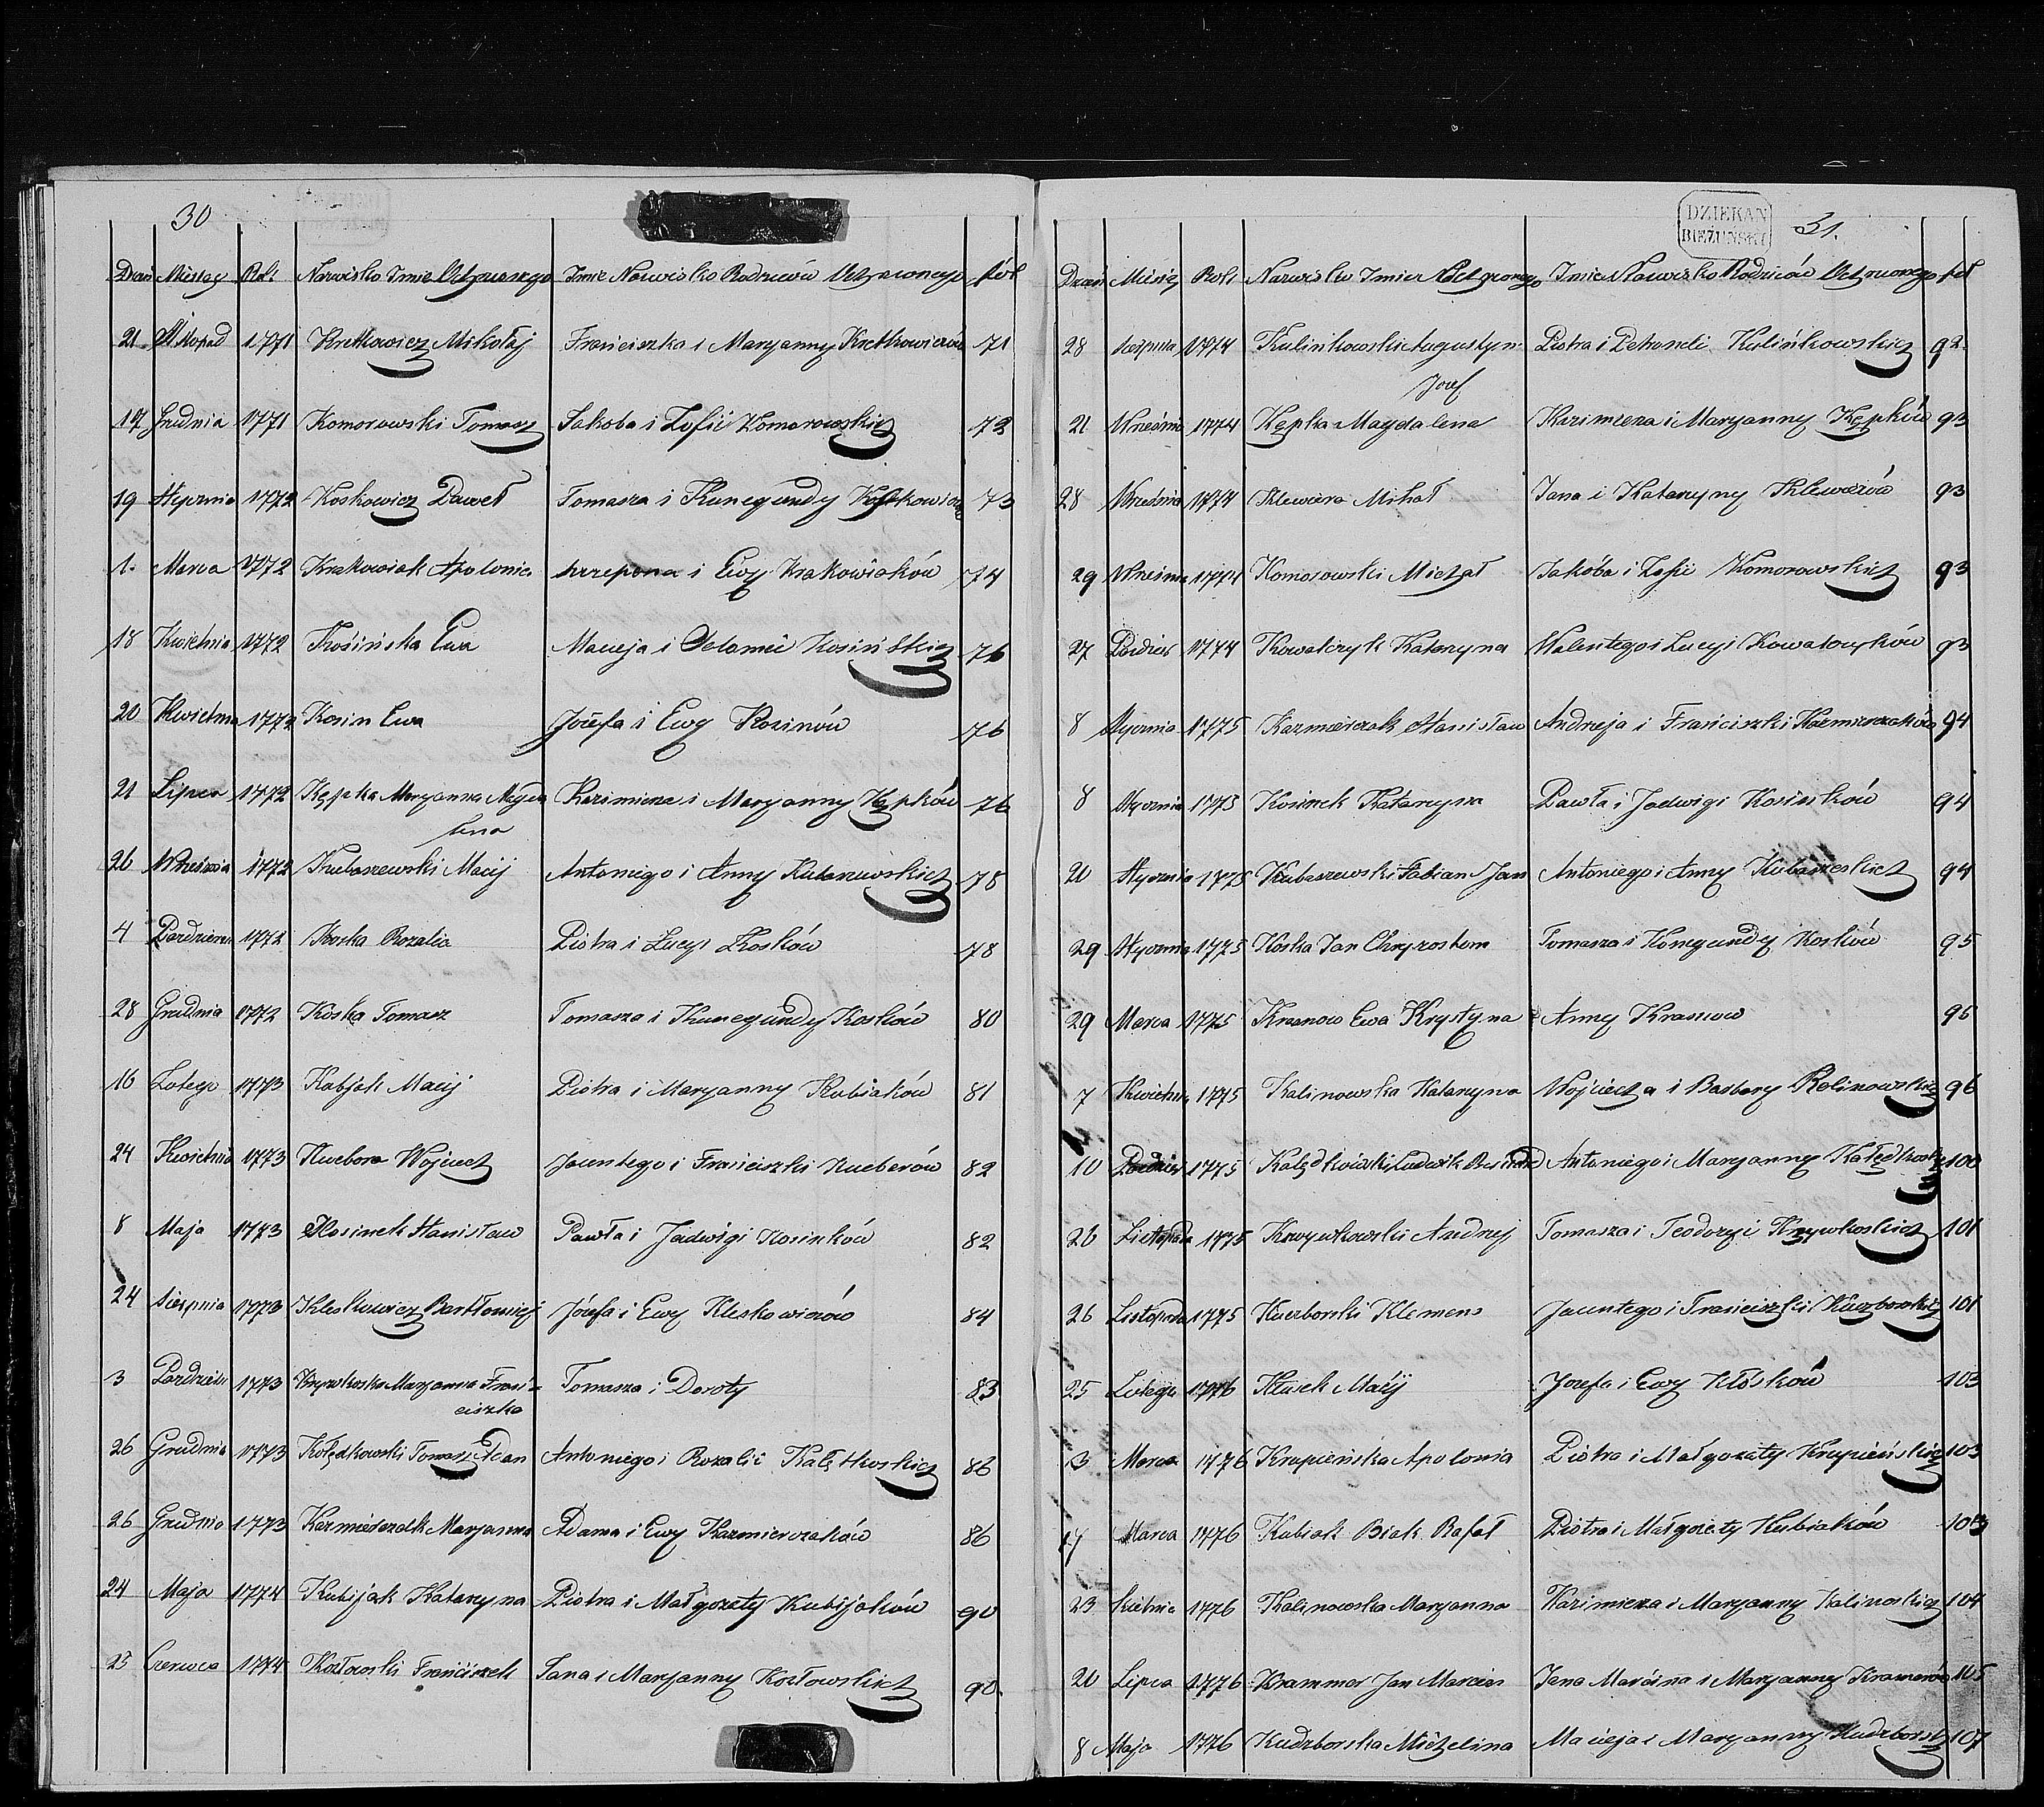 30
Dzień Miesiąc Rok Nazwisko Imie Ochrzczonego Imie Nazwisko Rodziców Ochrzczonego fol
21 Listopad 1771 Kretkowicz Mikołaj Franciszka i Maryanny Kretkowiczów 71
17 Grudnia 1771 Komorowski Tomasz Jakoba i Zofii Komorowskich 72
19 Stycznia 1772 Koskowicz Paweł Tomasza i Kunegundy 73
1. Marca 1772 Krakowiak Apolonia Szczepana i Ewy Krakowiaków 74
18 Kwietnia 1772 Kosińska Ewa Macieja i Salomei Kosińskich 76
20 Kwietnia 1772 Kosin Ewa Józefa i Ewy Kosinów 76
21 Lipca 1772 Kępka Maryanna Magda Kazimierza i Maryanny Kępków 76
lena
26 Września 1772 Kubaszewski Maciej Antoniego i Anny Kubaszewskich 78
4 Pazdziern 1772 Koska Rozalia Piotra i Łucyi Kosków 78
28 Grudnia 1772 Koska Tomasz Tomasza i Kunegundy Kosków 80
16 Lutego 1773 Kubjak Maciej Piotra i Maryanny Kubiaków 81
24 Kwietnia 1773 Kucbora Wojciech Jacentego i Franciszki Kucborów 82
8 Maja 1773 Kosinek Stanisław Pawła i Jadwigi Kosinków 82
24 Sierpnia 1773 Kleskowicz Bartłomiej Józefa i Ewy Kleskowiczów 84
3 Pazdzier 1773 Krzywkoska Maryanna Fran= Tomasza i Doroty 83
ciszka
26 Grudnia 1773 Kołędkowski Tomasz Adam Antoniego i Rozalii Kalętkoskich 86
26 Grudnia 1773 Kazmierczak Maryanna Adama i Ewy Kazmierczaków 86
24 Maja 1774 Kubijak Katarzyna Piotra i Małgorzaty Kubijaków 90
25 Czerwca 1774 Kozłowski Franciszek Jana i Maryanny Kozłowskich 90.
DZIEKAN
BIEŻUŃSKI
31.
Dzień Miesiąc Rok Nazwisko Imie Ochrzczonego Imie Nazwisko Rodziców Ochrzczonego fol
28 Sierpnia 1774 Kulinkowski Augustyn Piotra i Petroneli Kulińkowskich 92.
Jozef
21 Września 1774 Kępka Magdalena Kazimierza i Maryanny Kępków 93
28 Września 1774 Klewiera Michał Jana i Katarzyny Klewierów 93
29 Września 1774 Komorowski Michał Jakóba i Zofii Komorowskich 93
27 Pazdzier 1774 Kowalczyk Katarzyna Walentego i Łucyi Kowalczyków 93
8 Stycznia 1775 Kazmierczak Stanisław Andrzeja i Franciszki Kazmierczaków 94
8 Stycznia 1775 Kosinek Katarzyna Pawła i Jadwigi Kosinków 94
20 Stycznia 1775 Kubaszewski Fabian Jan Antoniego i Anny Kubaszeskich 94
29 Stycznia 1775 Koska Jan Chryzostom Tomasza i Konegundy Kosków 95
29 Marca 1775 Krasnow Ewa Krystyna Anny Krasnow 95
7 Kwietnia 1775 Kalinowska Katarzyna Wojciecha i Barbary Kalinowskich 96
10 Pazdzier 1775 Kalędkowiski Ludwik Antoniego i Maryanny Kalędkoskich 100
26 Listopada 1775 Krzywkowski Andrzej Tomasza i Teodozyi Krzywkoskich 101
26 Listopada 1775 Kuczborski Klemens Jacentego i Franciszki Kuczborskich 101
25 Lutego 1776 Klusek Maciej Jozefa i Ewy Kłósków 103
3 Marca 1776 Krupieńska Apolonia Piotra i Małgorzaty Krupieńskich 103
17 Marca 1776 Kubiak Biak Rafał Piotra i Małgorzety Kubiaków 103
23 Kwietnia 1776 Kalinowska Maryanna Kazimierza i Maryanny Kalinoskich 104
20 Lipca 1776 Krammer Jan Marcin Jana Marcina i Maryanny Kramerów 105
8 Maja 1776 Kudzborska Michelina Macieja i Maryanny Kudzborskich 107